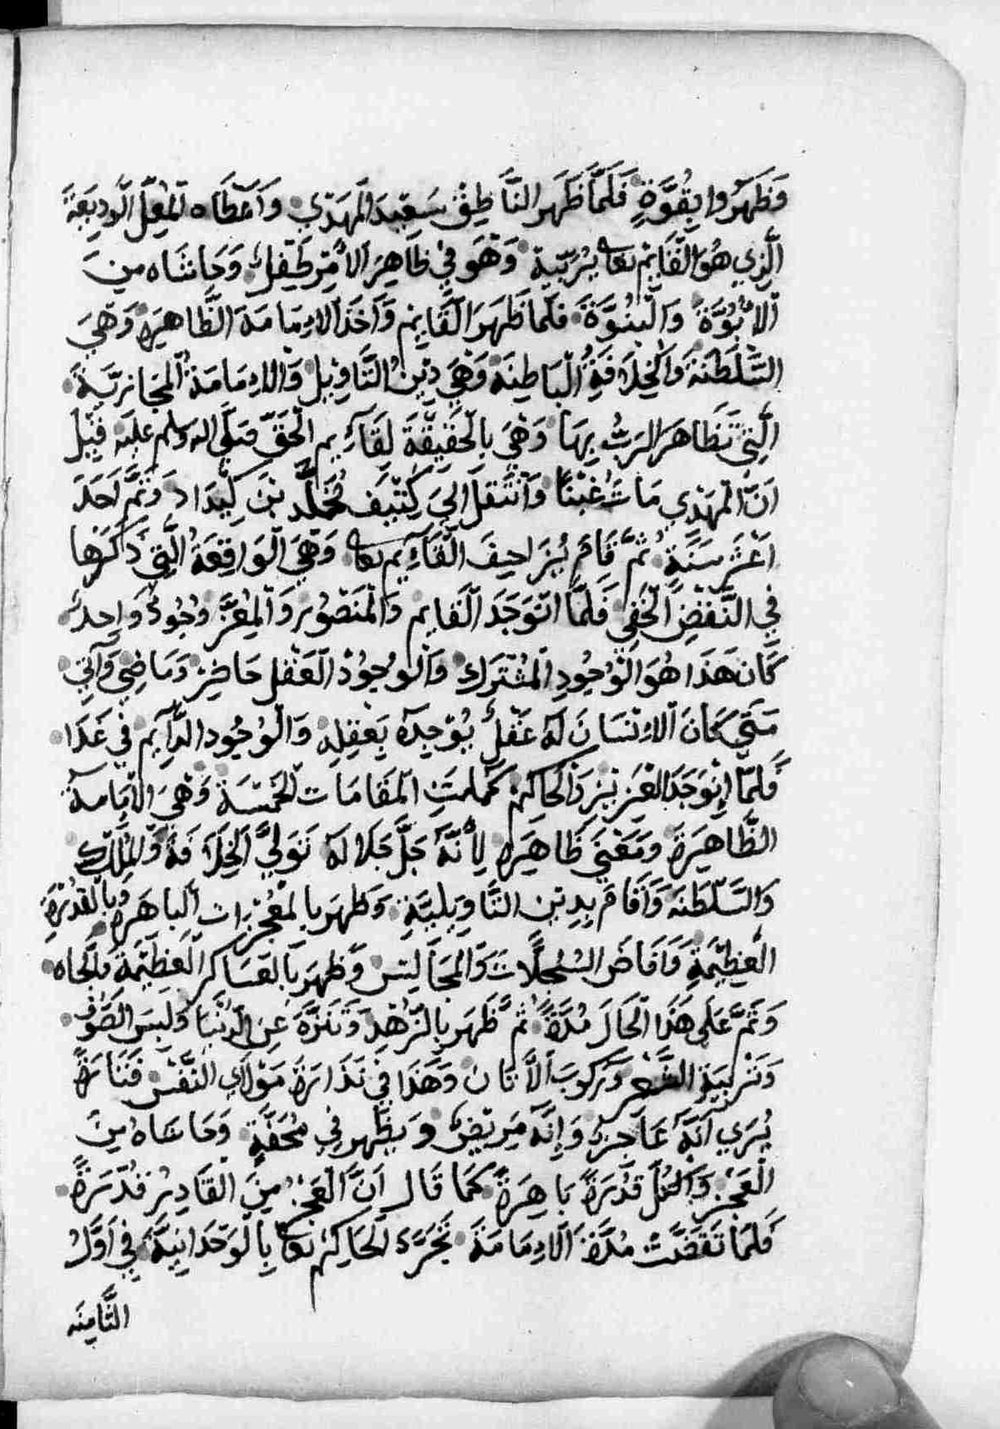 وَظَهَرُوا بِقُوَّةٍ فَلَمَّا ظَهَرَ النَّاطِقْ سَعِيدَ المَهْدِي وَاَعْطَاه المُعِلّ الْوَدِيعَةَ
الَّذِي هُوَ القَايِم يُرَبِّيهْ وَهُوَ فِي ظَاهِرَ الأَمْرِ طِفِلْ وَحَاشَاه مِنَ
الأُبُوَّةْ وَالْبُنُوَّةَ فَلَمَّا ظَهَرَ القَايِم وَاَخَذَ الاِمَامَةَ الظَّاهِرَه وَهِيَ
السَّلْطَنَهْ وَالْخِلاَفَهْ الْبَاطِنَهْ وَهِيَ دِينْ التَّاوِيْل وَالاِمَامَهْ المَجَازِيَّهْ
الَّتِي تَظَاهَرَ الرَبُّ بِهَا وَهِيَ بِالْحَقِيقَةَ لِقَآءِيم الْحَقّ صَلَّى الله وسلم عليه قِيْل
اَنَّ الْمَهْدِي مَاتَ وَانْتَقَلَ اِلَى مُخَلَّد بْنَ كِيْدَاد وَتَمَّ اَحَدَ
اعْشَر سَنَةْ ثُمَّ قَامَ القَآءِيم وَهِيَ الْوَاقِعَهْ الَّتِي ذَكَرَهَا
فِي النَّقْضَ الْخَفِي فَلَمَّا اتْوَجَدَ الْقَايِم وَالْمَنْصُوْر وَالْمِعِزّ وُجُوْدْ وَاحِدْ
كَانَ هَذَا هُوَ الْوُجُودِ المُشْتَرَكْ وَالْوُجُوْدْ الْعَقِل حَاضِرْ وَمَاضِي وَآتِي
مَتَى كَانَ الاِنْسَانَ لَهُ عَقْلْ يُوْجِدَهْ بِعَقِلِهْ وَالْوُجُود الدَّآيِم فِي غَدَا
فَلَمَّا اِتْوَجَدَ العَزِيْز وَالْحَاكِم كَمُلَتِ المَقَامَات الْخَمْسَهْ وَهِيَ الاِمَامَهْ
الظَّاهِرَهْ وَمَعْنَي ظَاهِرَه لِأَنَّهُ جَلَّ جَلَالَهْ تَوَلَّى الْخِلاَفَهْ وَالمُلْكْ
وَالسَّلْطَنَهْ وَاَقَامَ بِدِيْن التَّاوِيْلِيَّهْ وَظَهَرَ بالمُعْجِزَات الْبَاهَرَه وَبِالْقُدْرَةِ
العَظِيْمَهْ وَاَفَاضَ السُّجِلَّاتْ وَالْمَجَالِيسْ وَظَهَرَ بِالعَسَاكِر العَظِيْمَهْ وَالْجَاه
وَتَمَّ عَلَى هَذَا الْحَالَ مُدَّهْ ثُمَّ ظَهَرَ بِالزُّهْدِ وَتَنَزَّهَ عَنِ الدُّنْيَا وَلَبِسَ الصُّوفْ
وَتَرْبِيَةْ الشَّعَر وَرَكُوبَ الأَتَانْ وَهَذَا فِي نَذَارَةْ مَوْلاَي النَّفْسْ فَتَارَةً
يُرَي اَنَّهُ عَاجِزْ وَاِنَّهْ مَرِيْضْ وَيظْهر فِي مَحَفَّةٍ وَحَاشَاهْ مِنَ
الْعَجْز وَالكُلّ قُدْرَةً بَاهِرَةً كَمَا قَالَ اِنَّ الْعَجْزْ مِنَ الْقَادِرْ قُدْرَةً
فَلَمَّا تَقَضَّتْ مُدَّةْ الاِمَامَهْ تَجَرَّدَ الْحَاكِم بِالْوَحْدَانِيَّهْ فِي اَوَّلْ
الثَّامِنَه